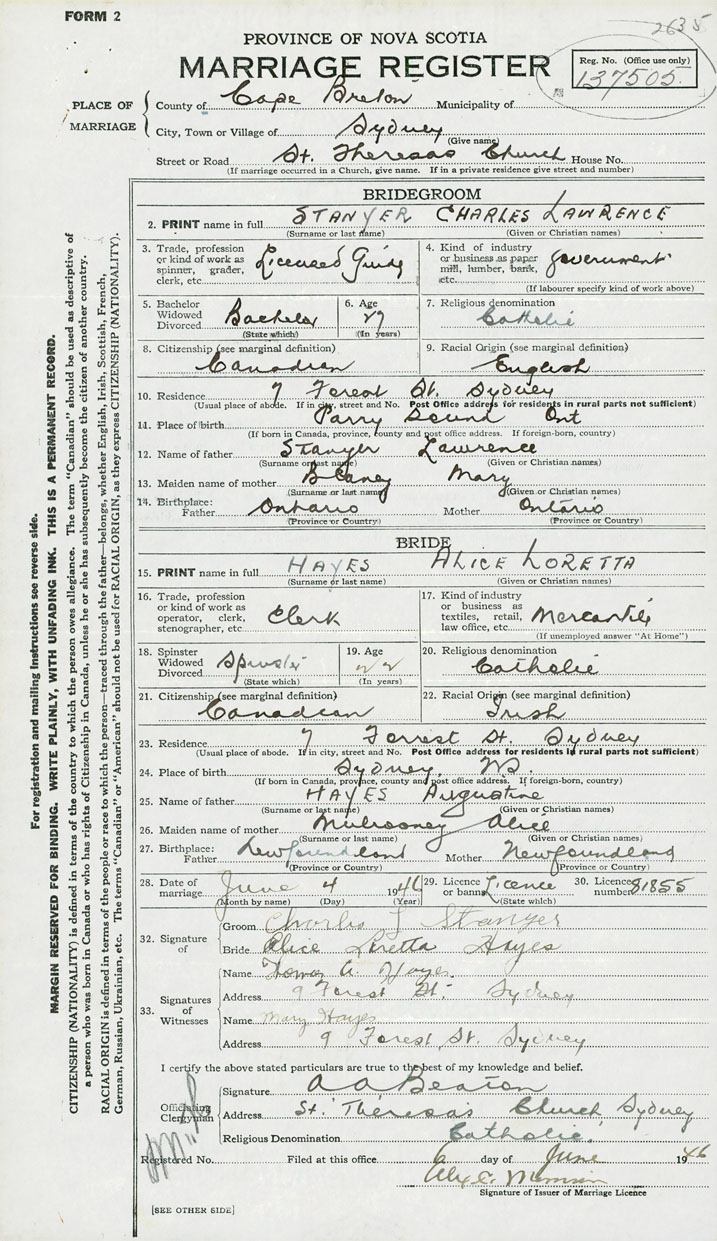 FORM 2
2635
PROVINCE OF NOVA SCOTIA
MARRIAGE REGISTER
Reg. No. (Office use only)
137505
PLACE OF MARRIAGE
County of Cape Breton Municipality of
City, Town or Village of Sydney
(Give name)
Street or Road St. Theresas Church House No.
(If marriage occurred in a Church, give name. If in a private residence give street and number)
BRIDEGROOM
2. PRINT name in full STANYER CHARLES LAWRENCE
(Surname or last name) (Given or Christian names)
3. Trade, profession or kind of work as spinner, grader, clerk, etc. Licensed Guide
4. Kind of industry or business as paper mill, lumber, bank, etc. Government
(If labourer specify kind of work above)
5. Bachelor Widowed Divorced Bachelor
(State which)
6. Age 27
(In years)
7. Religious denomination
Catholic
8. Citizenship (see marginal definition)
Canadian
9. Racial Origin (see marginal definition)
English
10. Residence 7 Forest St. Sydney
(Usual place of abode. If in city, street and No. Post Office address for residents in rural parts not sufficient)
11. Place of birth Parry Sound Ont
(If born in Canada, province, county and post office address. If foreign-born, country)
12. Name of father Stanyer Lawrence
(Surname or last name) (Given or Christian names)
13. Maiden name of mother Blaney Mary
(Surname or last name) (Given or Christian names)
14. Birthplace: Father Ontario Mother Ontario
(Province or Country) (Province or Country)
BRIDE
15. PRINT name in full HAYES ALICE LORETTA
(Surname or last name) (Given or Christian names)
16. Trade, profession or kind of work as operator, clerk, stenographer, etc. Clerk
17. Kind of industry or business as textiles, retail, law office, etc. Mercantile
(If unemployed answer "At Home")
18. Spinster Widowed Divorced Spinster
(State which)
19. Age 22
(In years)
20. Religious denomination
Catholic
21. Citizenship (see marginal definition)
Canadian
22. Racial Origin (see marginal definition)
Irish
23. Residence 7 Forrest St. Sydney
(Usual place of abode. If in city, street and No. Post Office address for residents in rural parts not sufficient)
24. Place of birth Sydney, NS.
(If born in Canada, province, county and post office address. If foreign-born, country)
25. Name of father HAYES Augustine
(Surname or last name) (Given or Christian names)
26. Maiden name of mother Mulrooney Alice
(Surname or last name) (Given or Christian names)
27. Birthplace: Father Newfoundland Mother Newfoundland
(Province or Country) (Province or Country)
28. Date of marriage June 4 1946
(Month by name) (Day) (Year)
29. Licence or banns Licence
(State which)
30. Licence number 81855
32. Signature of
Groom Charles L Stanyer
Bride Alice Loretta Hayes
33. Signatures of Witnesses
Name Thomas A. Hayes.
Address 9 Forest St. Sydney
Name Mary Hayes
Address 9 Forest St. Sydney
I certify the above stated particulars are true to the best of my knowledge and belief.
Officiating Clergyman
Signature A A Beaton
Address St. Theresa's Church Sydney
Religious Denomination Catholic.
Registered No. Filed at this office 6 day of June 1946
Signature of Issuer of Marriage Licence
[SEE OTHER SIDE]
For registration and mailing instructions see reverse side.
MARGIN RESERVED FOR BINDING. WRITE PLAINLY, WITH UNFADING INK. THIS IS A PERMANENT RECORD.
CITIZENSHIP (NATIONALITY) is defined in terms of the country to which the person owes allegiance. The term "Canadian" should be used as descriptive of
a person who was born in Canada or who has rights of Citizenship in Canada, unless he or she has subsequently become the citizen of another country.
RACIAL ORIGIN is defined in terms of the people or race to which the person—traced through the father—belongs, whether English, Irish, Scottish, French,
German, Russian, Ukrainian, etc. The terms "Canadian" or "American" should not be used for RACIAL ORIGIN, as they express CITIZENSHIP (NATIONALITY).